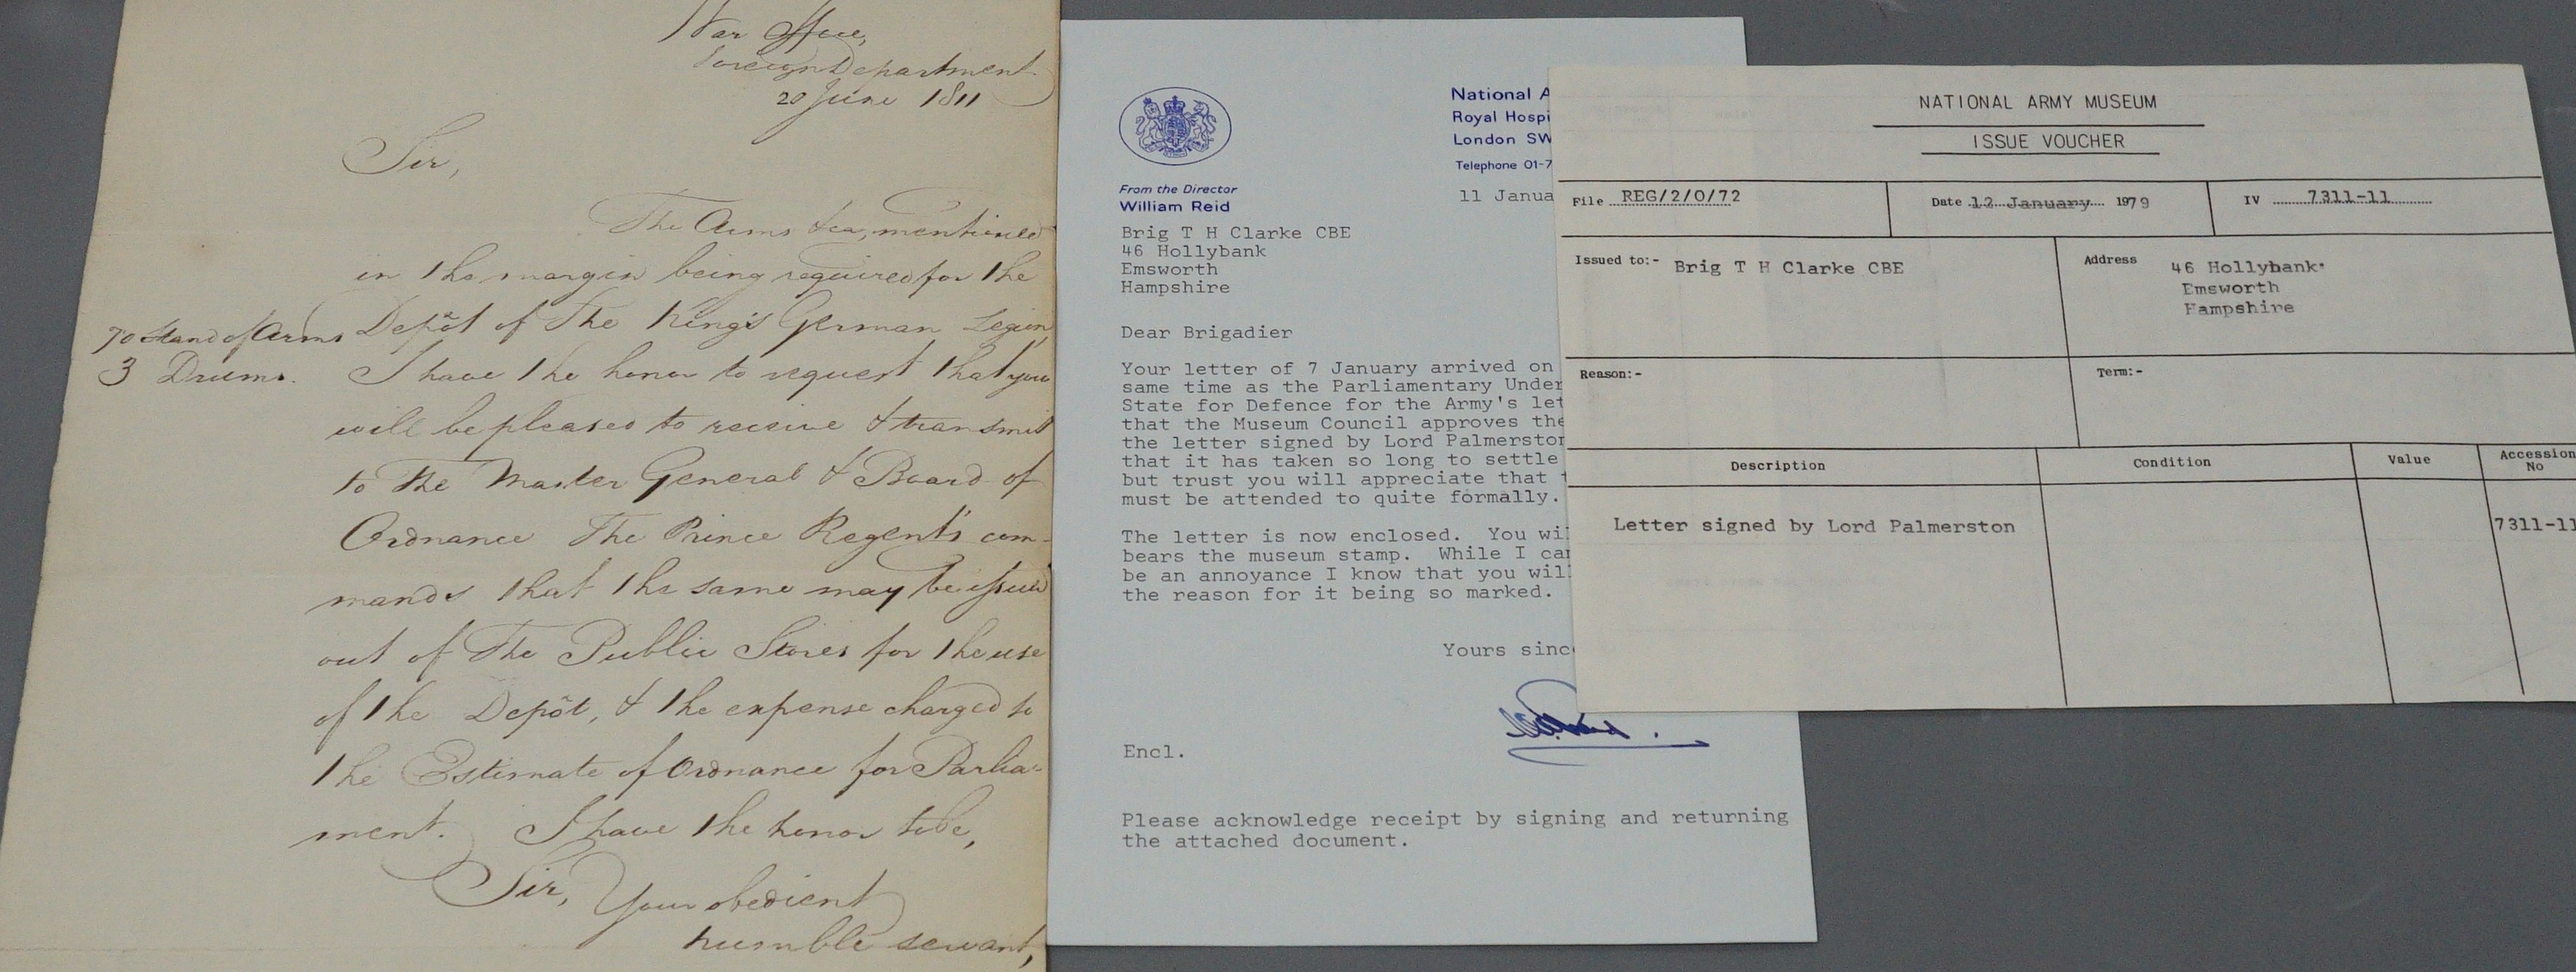 War Office,
Foreign Department
20 June 1811
Sir,
The Arms &ca, mentioned
in the margin being required for the
70 Stand of Arms
3 Drums.
Depôt of The King's German Legion,
I have the honor to request that you
will be pleased to receive & transmit
to The Master General & Board of
Ordnance The Prince Regent's com-
mands that the same may be issued
out of The Public Stores for the use
of the Depôt, & the expense charged to
the Estimate of Ordnance for Parlia-
ment. I have the honor to be,
Sir, Your obedient
humble servant,
National A
Royal Hospi
London SW
Telephone 01-7
From the Director
William Reid
11 Janua
Brig T H Clarke CBE
46 Hollybank
Emsworth
Hampshire
Dear Brigadier
Your letter of 7 January arrived on
same time as the Parliamentary Under
State for Defence for the Army's let
that the Museum Council approves the
the letter signed by Lord Palmerston
that it has taken so long to settle
but trust you will appreciate that t
must be attended to quite formally.
The letter is now enclosed. You wil
bears the museum stamp. While I can
be an annoyance I know that you will
the reason for it being so marked.
Yours since
Encl.
Please acknowledge receipt by signing and returning
the attached document.
NATIONAL ARMY MUSEUM
ISSUE VOUCHER
File REG/2/0/72
Date 12 January 1979
IV 7311-11
Issued to:- Brig T H Clarke CBE
Address 46 Hollybank
Emsworth
Hampshire
Reason:-
Term:-
Description
Condition
Value
Accession
No
Letter signed by Lord Palmerston
7311-11